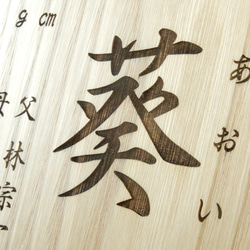 葵
あおい
g cm
父 林宗
母